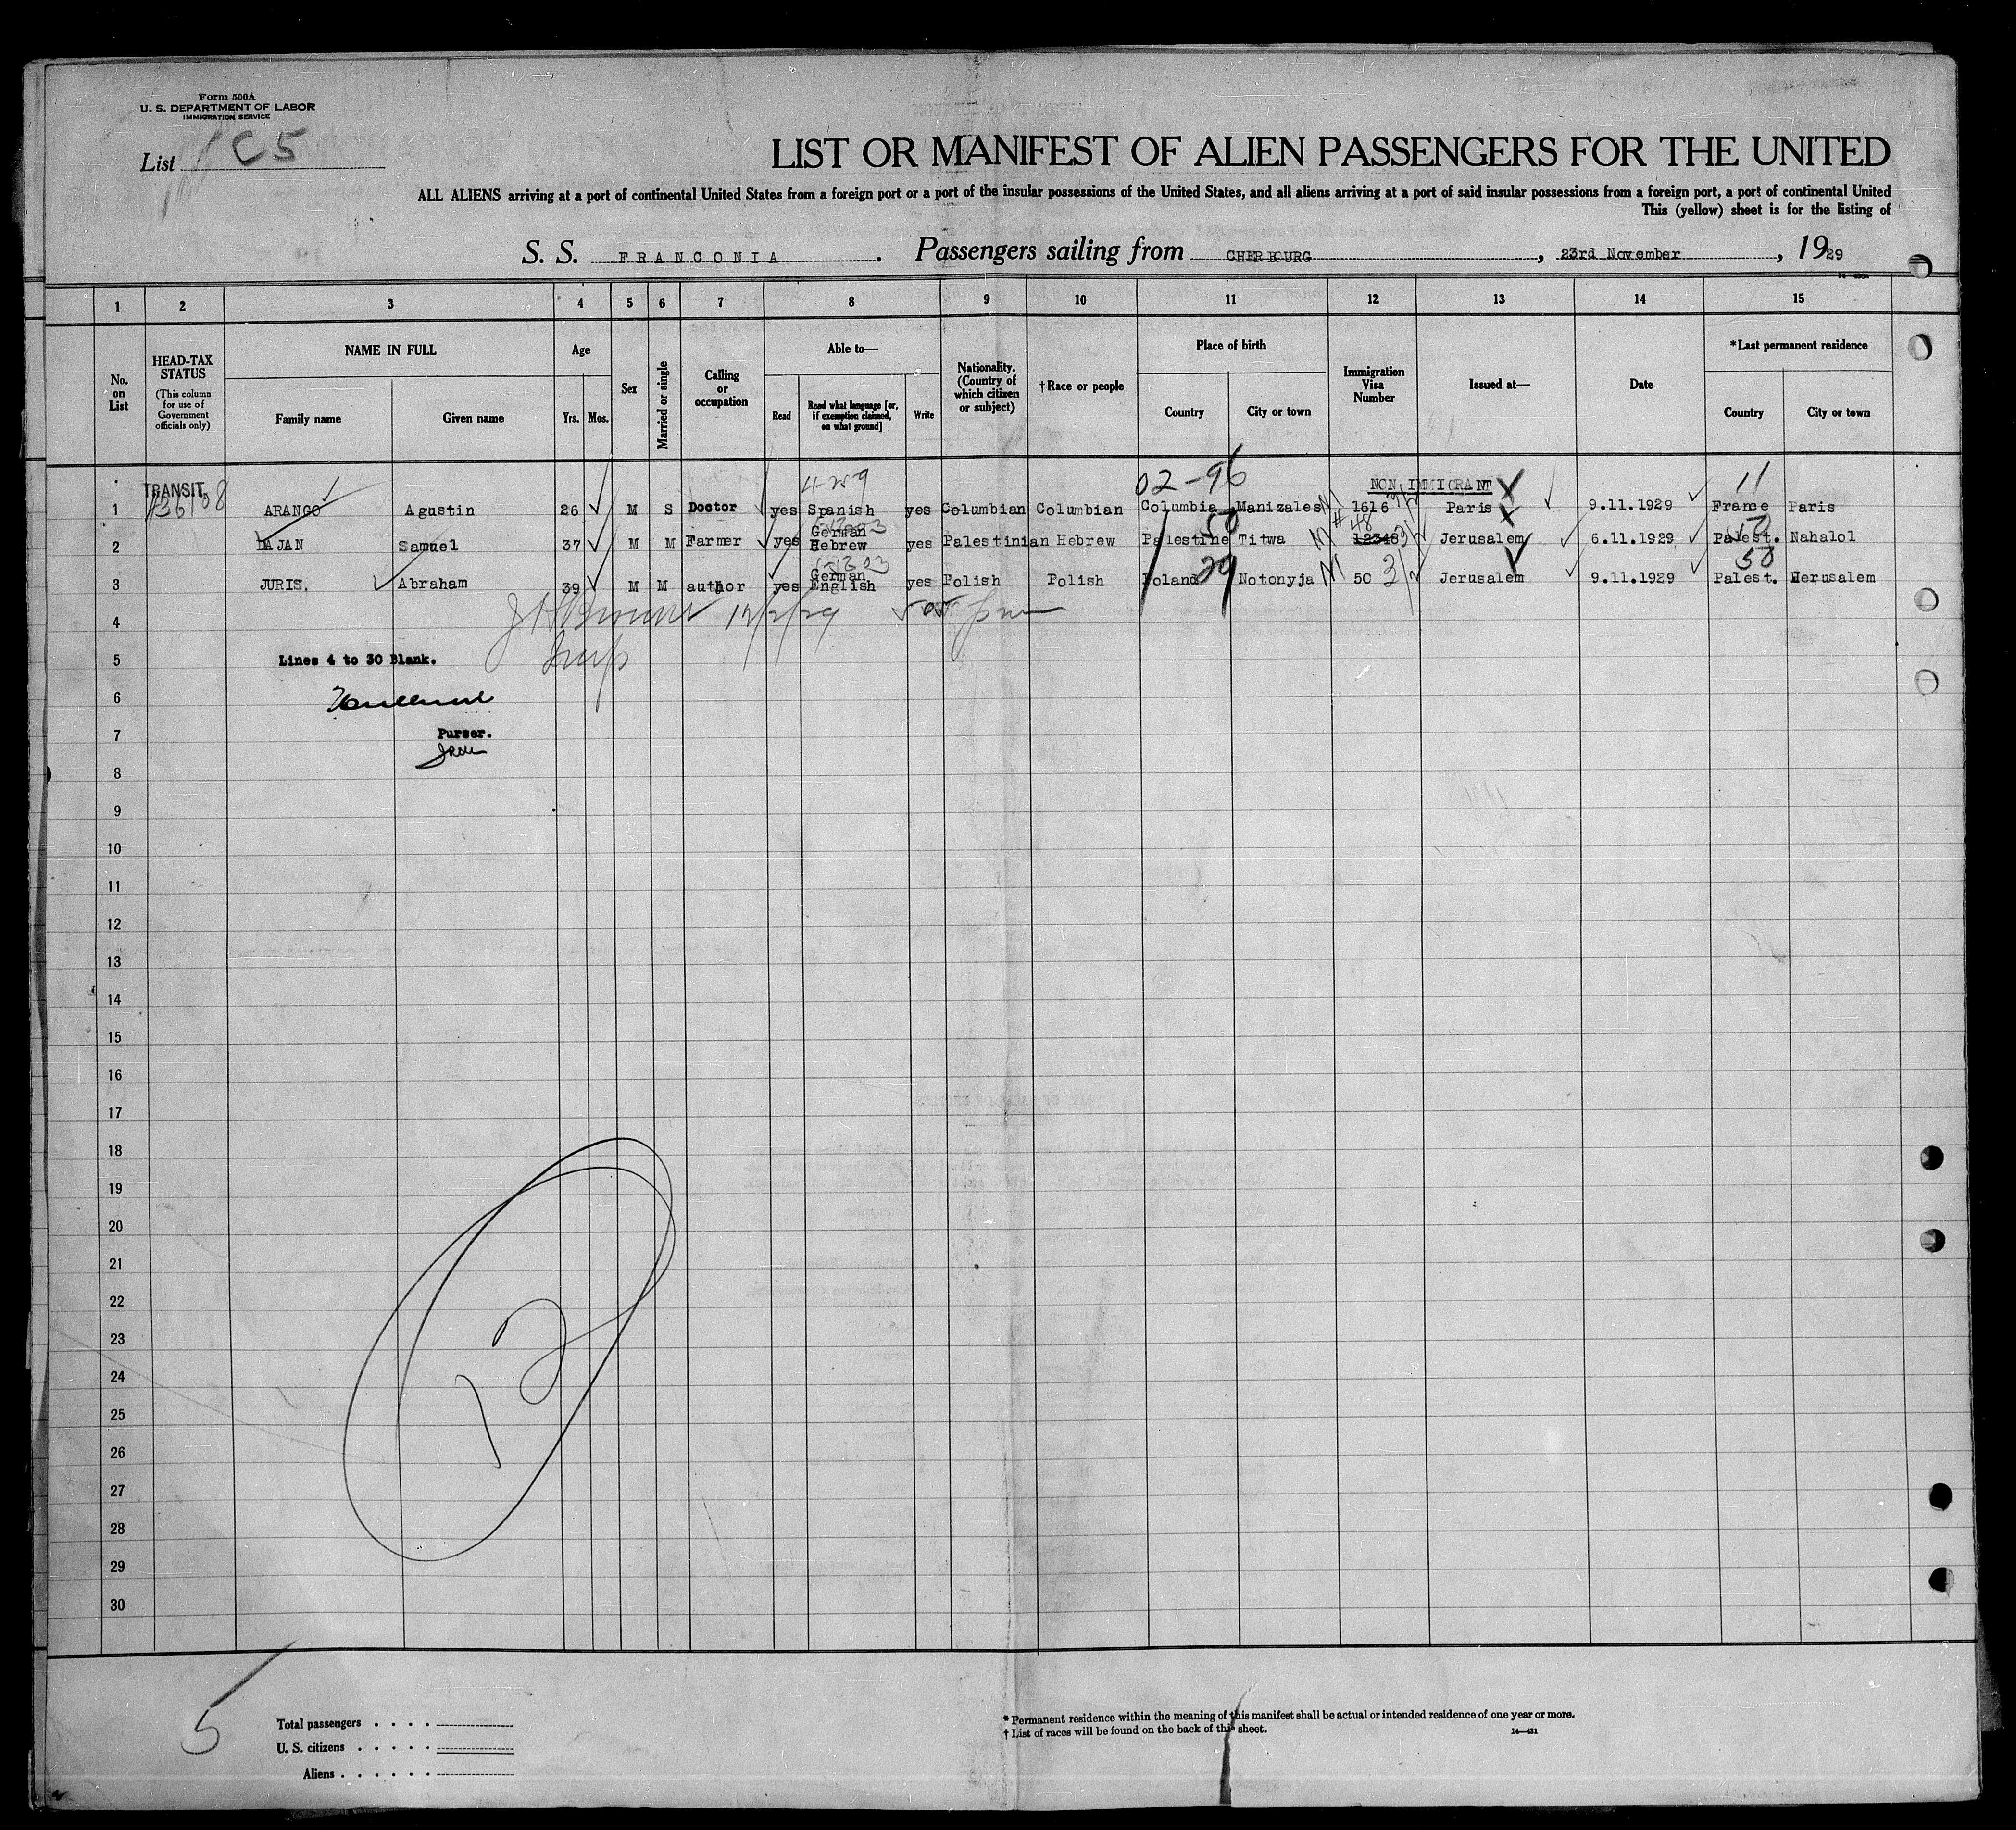 Form 500A
U. S. DEPARTMENT OF LABOR
IMMIGRATION SERVICE
List C5
LIST OR MANIFEST OF ALIEN PASSENGERS FOR THE UNITED
ALL ALIENS arriving at a port of continental United States from a foreign port or a port of the insular possessions of the United States, and all aliens arriving at a port of said insular possessions from a foreign port, a port of continental United
This (yellow) sheet is for the listing of
S. S. FRANCONIA . Passengers sailing from CHERBOURG , 23rd November , 1929
1 2 3 4 5 6 7 8 9 10 11 12 13 14 15
No. on List
HEAD-TAX STATUS
(This column for use of Government officials only)
NAME IN FULL
Family name Given name
Age
Yrs. Mos.
Sex
Married or single
Calling or occupation
Able to—
Read
Read what language [or, if exemption claimed, on what ground]
Write
Nationality. (Country of which citizen or subject)
†Race or people
Place of birth
Country City or town
Immigration Visa Number
Issued at—
Date
*Last permanent residence
Country City or town
02-96
TRANSIT NON IMMIGRANT 11
1 ARANGO Agustin 26 M S Doctor yes Spanish yes Columbian Columbian Columbia Manizales 1616 Paris 9.11.1929 France Paris
German 50 48
2 DAJAN Samuel 37 M M Farmer yes Hebrew yes Palestinian Hebrew Palestine Titwa 12348 Jerusalem 6.11.1929 Palest. Nahalol
German 29 50
3 JURIS, Abraham 39 M M author yes English yes Polish Polish Poland Notonyja 50 Jerusalem 9.11.1929 Palest. Herusalem
12/2/29
4
5 Lines 4 to 30 Blank.
6
7 Purser.
8
9
10
11
12
13
14
15
16
17
18
19
20
21
22
23
24
25
26
27
28
29
30
12
5
Total passengers . . . .
U. S. citizens . . . . .
Aliens . . . . . .
* Permanent residence within the meaning of this manifest shall be actual or intended residence of one year or more.
† List of races will be found on the back of this sheet.
14—431